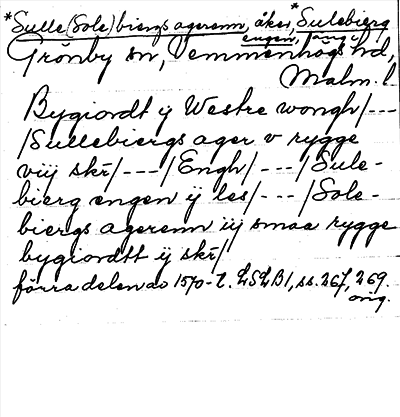 *Sulle(Sole)biergs agerenn, åker, *Sulebierg
engen, äng i
Grönby sn, Vemmenhögs hd,
Malm. l.
Bygiordt ÿ Westre wongh/---
/Sullebiergs ager v rygge
viij skr/---/Engh/---/Sule-
bierg engen ÿ les/---/Sole-
biergs agerenn iij smaa rygge
bygiordtt ÿ skr/
förra delen av 1570-t. LSLB1, ss. 267, 269.
orig.